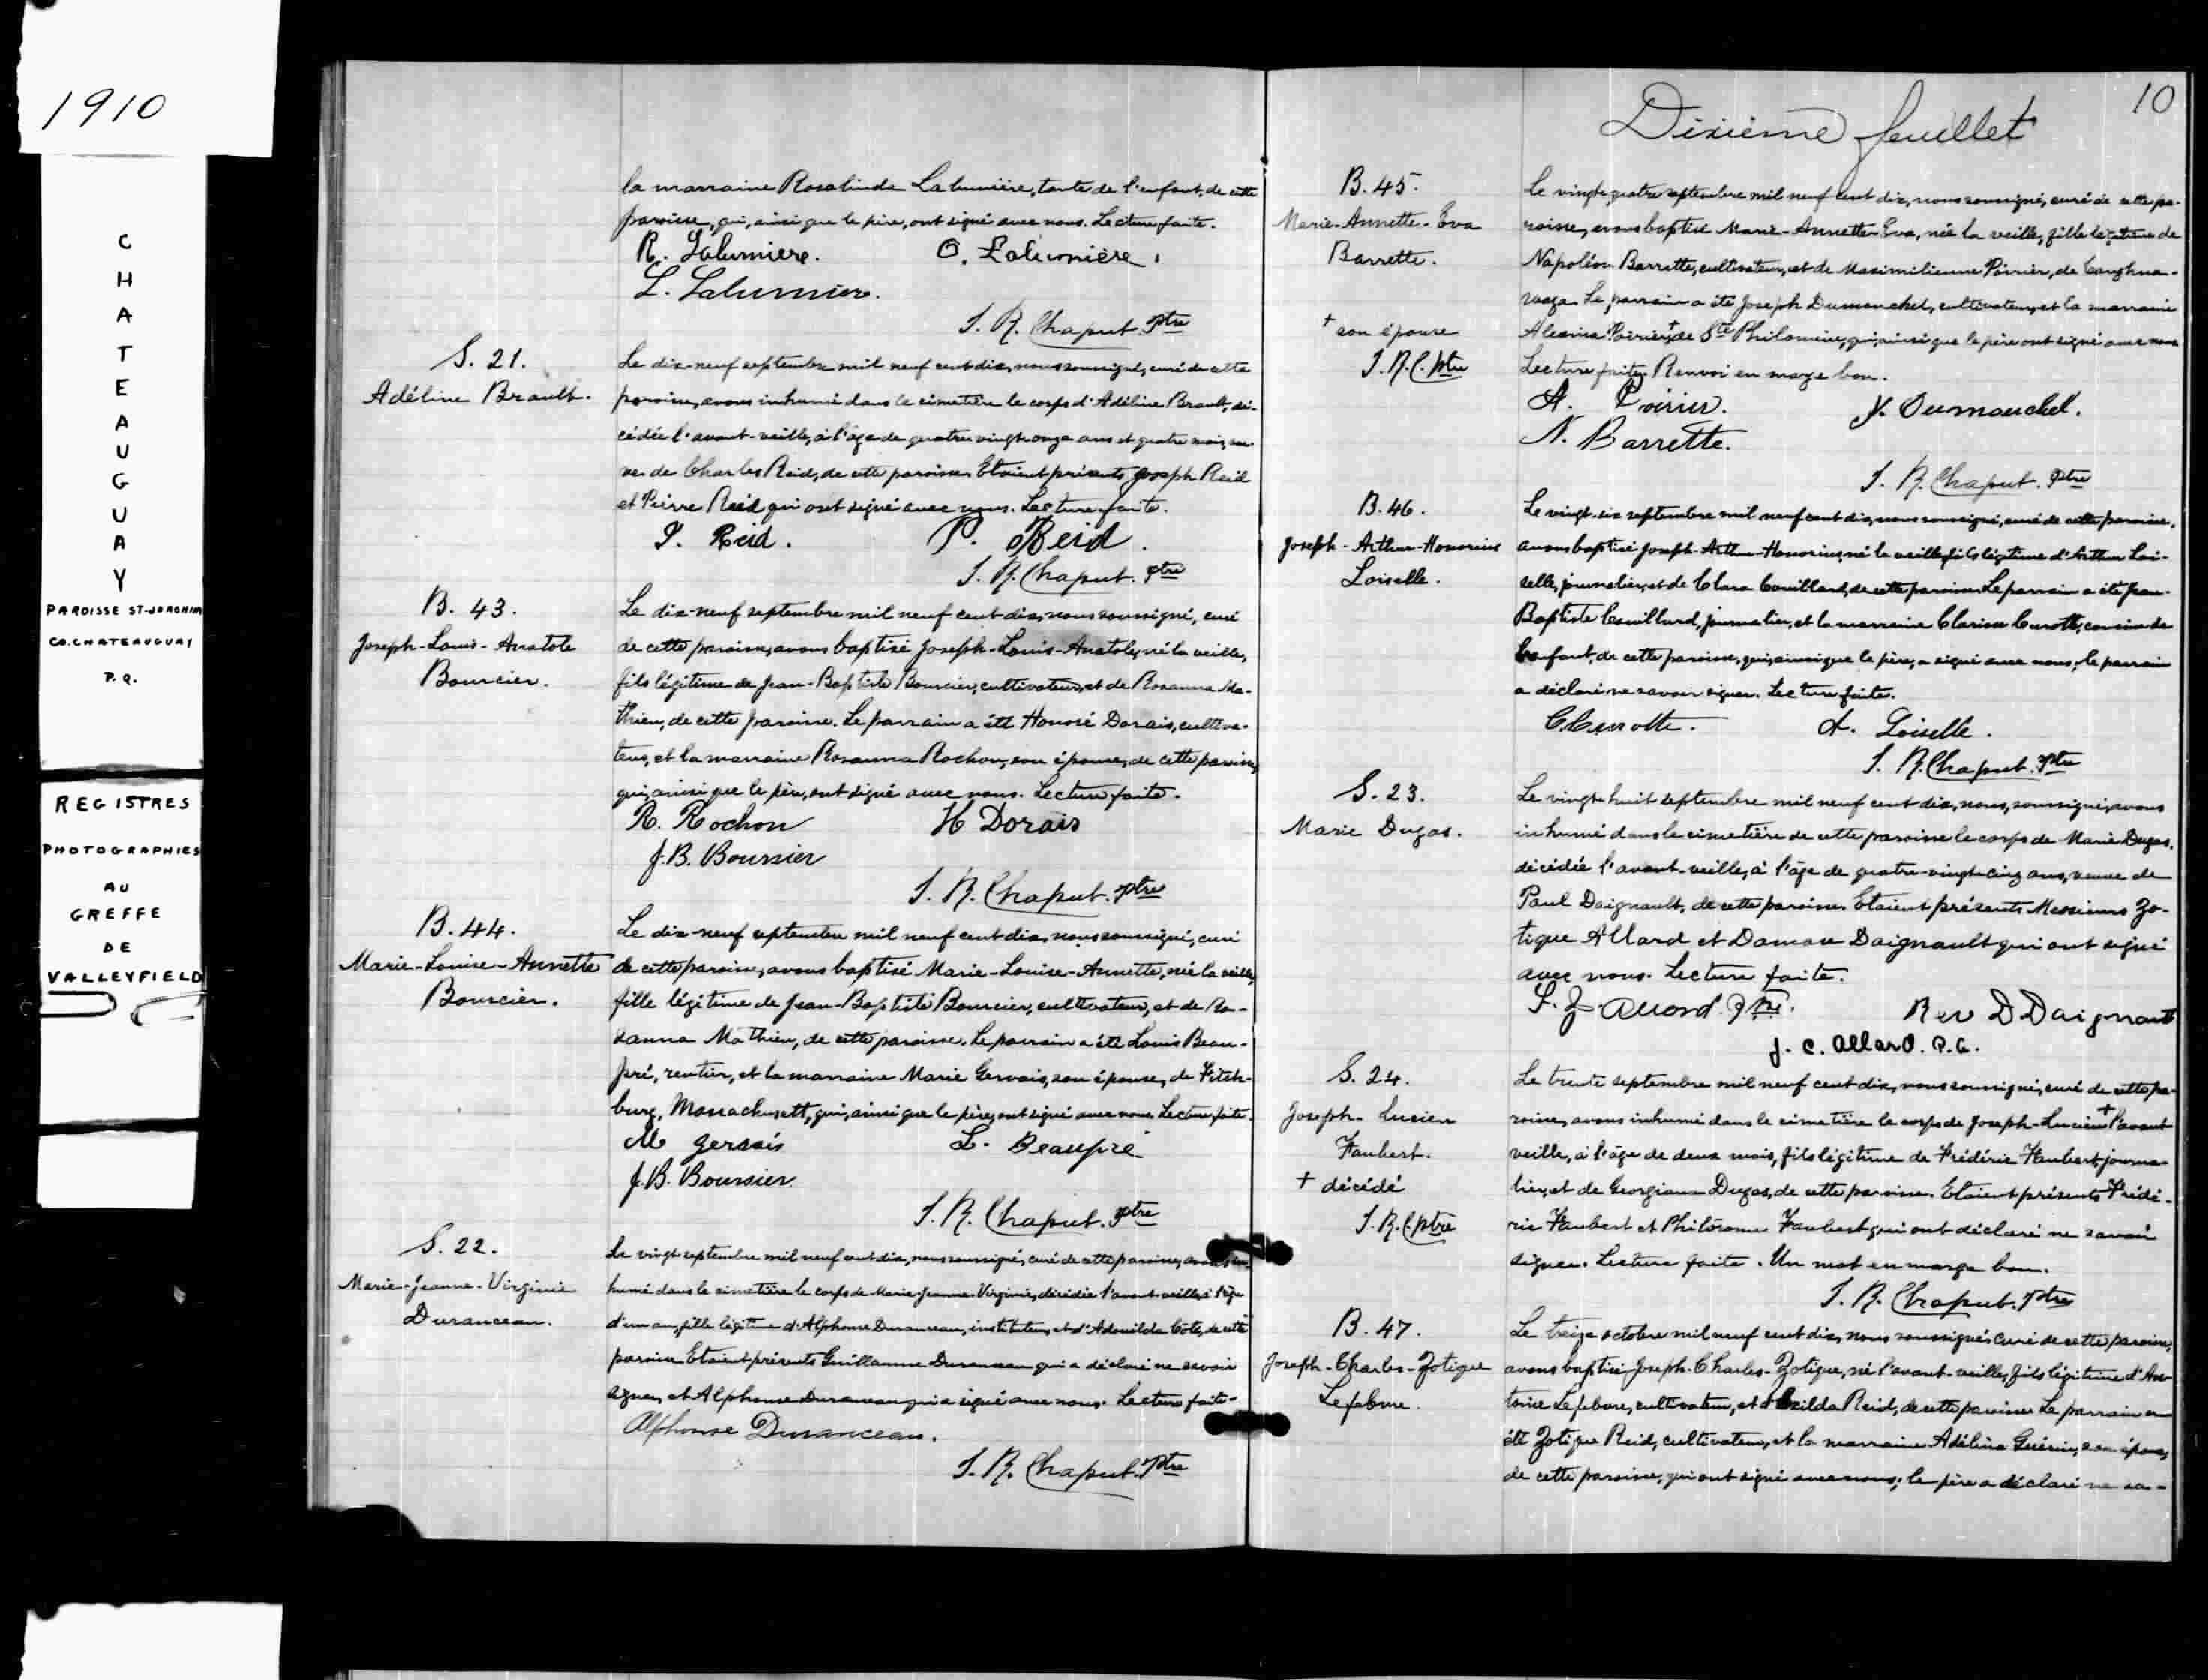 1910
CHATEAUGUAY
PAROISSE ST-JOACHIM
CO. CHATEAUGUAY
P.Q.
REGISTRES
PHOTOGRAPHIES
AU
GREFFE
DE
VALLEYFIELD
la marraine Rosalinda Lalumière, tante de l'enfant, de cette
paroisse, qui, ainsi que le père, ont signé avec nous. Lecture faite.
R. Lalumiere. O. Lalumière.
L. Lalumière.
J. R. Chaput. Ptre
S. 21.
Adéline Brault.
Le dix-neuf septembre mil neuf cent dix, nous soussigné, curé de cette
paroisse, avons inhumé dans le cimetière le corps d'Adéline Brault, dé-
cédée l'avant-veille, à l'âge de quatre vingt onze ans et quatre mois, veu-
ve de Charles Reid, de cette paroisse. Etaient présents Joseph Reid
et Pierre Reid qui ont signé avec nous. Lecture faite.
J. Reid. P. Reid.
J. R. Chaput. Ptre
B. 43.
Joseph-Louis-Anatole
Bourcier.
Le dix-neuf septembre mil neuf cent dix, nous soussigné, curé
de cette paroisse, avons baptisé Joseph-Louis-Anatole, né la veille,
fils légitime de Jean-Baptiste Bourcier, cultivateur, et de Rosanna Ma-
thieu, de cette paroisse. Le parrain a été Honoré Dorais, cultiva-
teur, et la marraine Rosanna Rochon, son épouse, de cette paroisse,
qui, ainsi que le père, ont signé avec nous. Lecture faite.
R. Rochon H Dorais
J.B. Boursier
J. R. Chaput. Ptre
B. 44.
Marie-Louise-Annette
Bourcier.
Le dix-neuf septembre mil neuf cent dix, nous soussigné, curé
de cette paroisse, avons baptisé Marie-Louise-Annette, née la veille,
fille légitime de Jean-Baptiste Bourcier, cultivateur, et de Ro-
sanna Mathieu, de cette paroisse. Le parrain a été Louis Beau-
pré, rentier, et la marraine Marie Gervais, son épouse, de Fitch-
burg, Massachusett, qui, ainsi que le père, ont signé avec nous. Lecture faite.
M gervais L. Beaupré
J.B. Boursier
J. R. Chaput. Ptre
S. 22.
Marie-Jeanne-Virginie
Duranceau.
Le vingt septembre mil neuf cent dix, nous soussigné, curé de cette paroisse, avons in-
humé dans le cimetière le corps de Marie-Jeanne-Virginie, décédée l'avant-veille, à l'âge
d'un an, fille légitime d'Alphonse Duranceau, instituteur, et d'Adouilda Côté, de cette
paroisse. Etaient présents Guillaume Duranceau qui a déclaré ne savoir
signer, et Alphonse Duranceau qui a signé avec nous. Lecture faite.
Alphonse Duranceau.
J. R. Chaput. Ptre
10
Dixième feuillet
B. 45.
Marie-Annette-Eva
Barrette.
† son épouse
J. R. C. Ptre
Le vingt-quatre septembre mil neuf cent dix, nous soussigné, curé de cette pa-
roisse, avons baptisé Marie-Annette-Eva, née la veille, fille légitime de
Napoléon Barrette, cultivateur, et de Maximilienne Poirier, de Caughna-
waga. Le parrain a été Joseph Dumouchel, cultivateur, et la marraine
Alexina Poirier,† de Ste Philomène, qui, ainsi que le père ont signé avec nous
Lecture faite. Renvoi en marge bon.
A. Poirier. J. Dumouchel.
N. Barrette.
J. R. Chaput. Ptre
B. 46.
Joseph-Arthur-Honorius
Loiselle.
Le vingt-six septembre mil neuf cent dix, nous soussigné, curé de cette paroisse,
avons baptisé Joseph-Arthur-Honorius, né la veille, fils légitime d'Arthur Loi-
selle, journalier, et de Clara Couillard, de cette paroisse. Le parrain a été Jean-
Baptiste Couillard, journalier, et la marraine Clarisse Curotte, cousine de
l'enfant, de cette paroisse, qui, ainsi que le père, a signé avec nous; le parrain
a déclaré ne savoir signer. Lecture faite.
C Curotte. A. Loiselle.
J. R. Chaput. Ptre
S. 23.
Marie Dugas.
Le vingt-huit septembre mil neuf cent dix, nous, soussigné, avons
inhumé dans le cimetière de cette paroisse le corps de Marie Dugas,
décédée l'avant-veille, à l'âge de quatre-vingt-cinq ans, veuve de
Paul Daignault, de cette paroisse. Etaient présents Messieurs Zo-
tique Allard et Damase Daignault qui ont signé
avec nous. Lecture faite.
Z. Allard Ptre. Rev D Daignault
J. C. Allard. P.C.
S. 24.
Joseph-Lucien
Faubert.
† décédé
J. R. C. Ptre
Le trente septembre mil neuf cent dix, nous soussigné, curé de cette pa-
roisse, avons inhumé dans le cimetière le corps de Joseph-Lucien † l'avant
veille, à l'âge de deux mois, fils légitime de Frédéric Faubert, journa-
lier, et de Georgiana Dugas, de cette paroisse. Etaient présents Frédé-
ric Faubert et Philorome Faubert qui ont déclaré ne savoir
signer. Lecture faite. Un mot en marge bon.
J. R. Chaput. Ptre
B. 47.
Joseph-Charles-Zotique
Lefebvre.
Le treize octobre mil neuf cent dix, nous soussigné, curé de cette paroisse,
avons baptisé Joseph-Charles-Zotique, né l'avant-veille, fils légitime d'An-
toine Lefebvre, cultivateur, et d'Exilda Reid, de cette paroisse. Le parrain a
été Zotique Reid, cultivateur, et la marraine Adélina Guérin, son épouse,
de cette paroisse, qui ont signé avec nous; le père a déclaré ne sa-